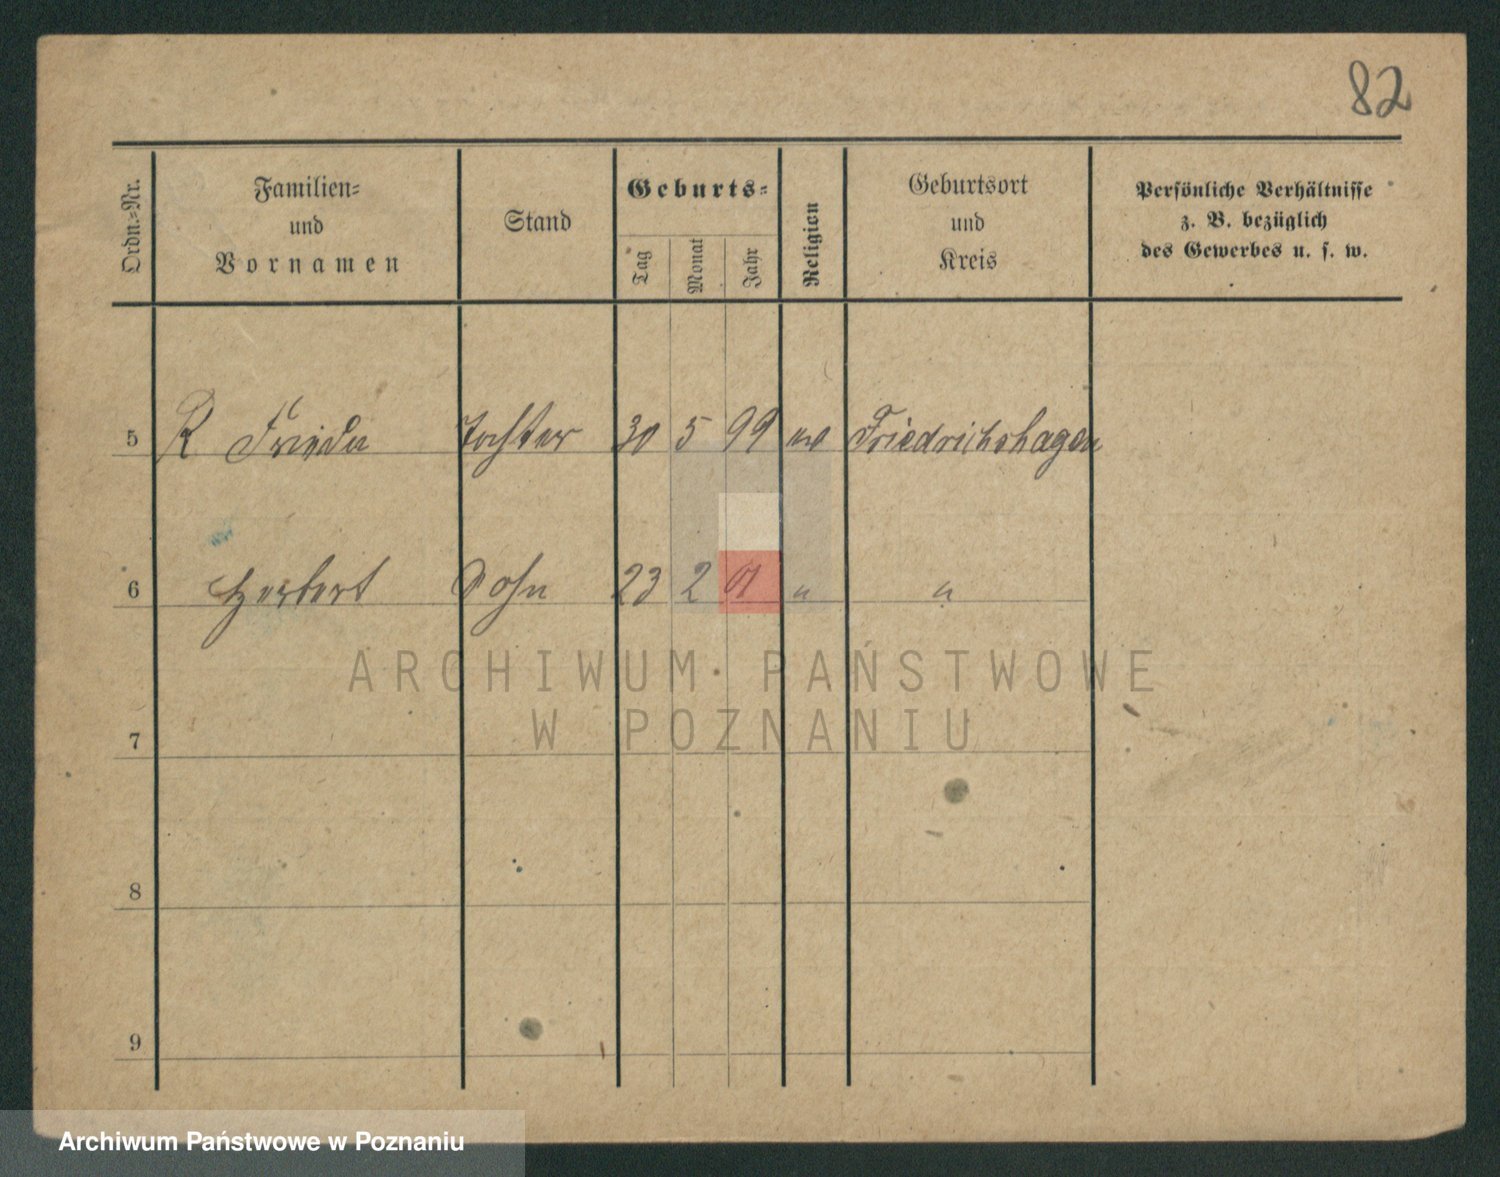 82
Ordn.-Nr.
Familien-
und
Vornamen
Stand
Geburts-
Tag
Monat
Jahr
Religion
Geburtsort
und
Kreis
Persönliche Verhältnisse
z. B. bezüglich
des Gewerbes u. s. w.
5 R Frieda Tochter 30 5 99 Friedrichshagen
6 Herbert Sohn 23 2 01 " "
ARCHIWUM PAŃSTWOWE
W POZNANIU
7
8
9
Archiwum Państwowe w Poznaniu